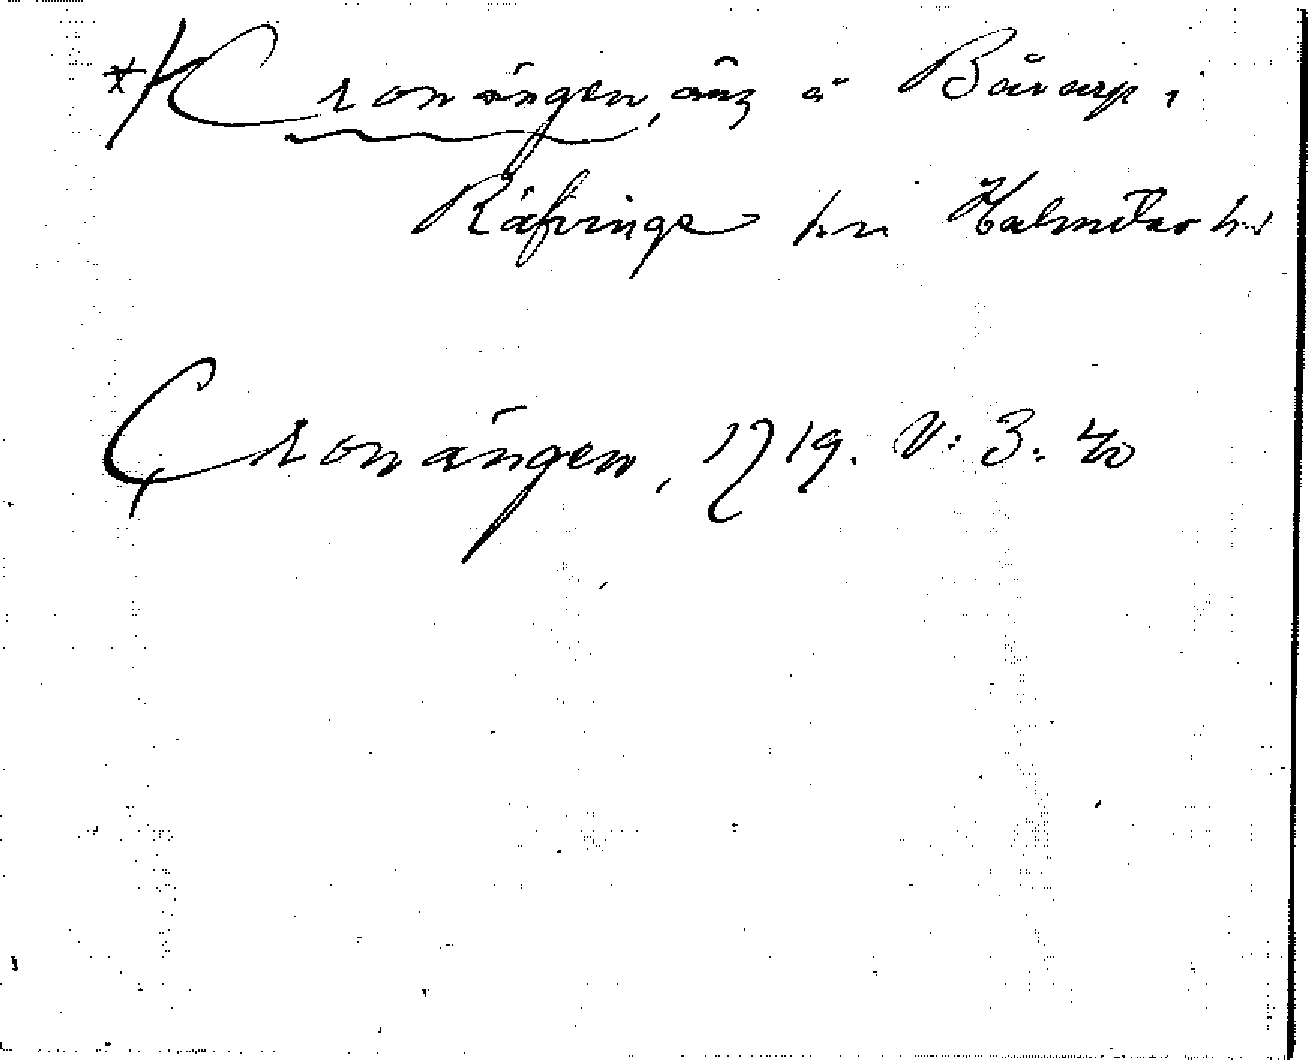 *Kronängen, äng å Båvarp,
Räfvinge sn Halmstads hd
Cronängen, 1719. V: 3: 40